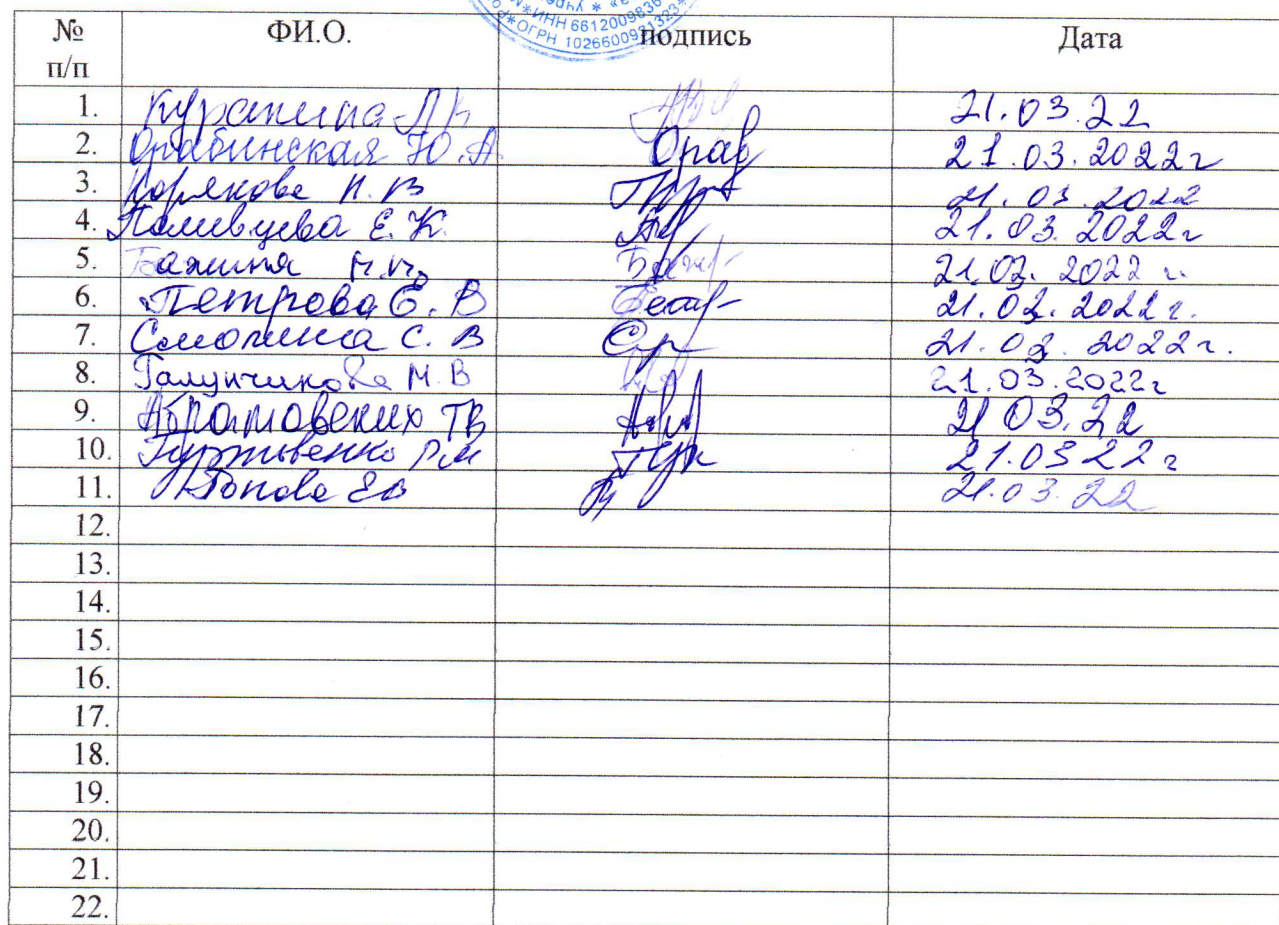 ИНН 6612009836
ОГРН 1026600931323
№ п/п ФИ.О. подпись Дата
1. 21.03.22
2. Орабинская Ю.А. Ораб 21.03.2022г
3. Корякова Н.В 21.03.2022
4. Поливцева Е.К. 21.03.2022г
5. Бажина 21.03.2022 г.
6. Петрова Е.В 21.03.2022г.
7. Смолина С.В Ср 21.03.2022г.
8. Галунчикова М.В 21.03.2022г
9. Абрамовских ТВ 21 03.22
10. 21.03 22 г
11. Попова ЕВ 21.03.22
12.
13.
14.
15.
16.
17.
18.
19.
20.
21.
22.